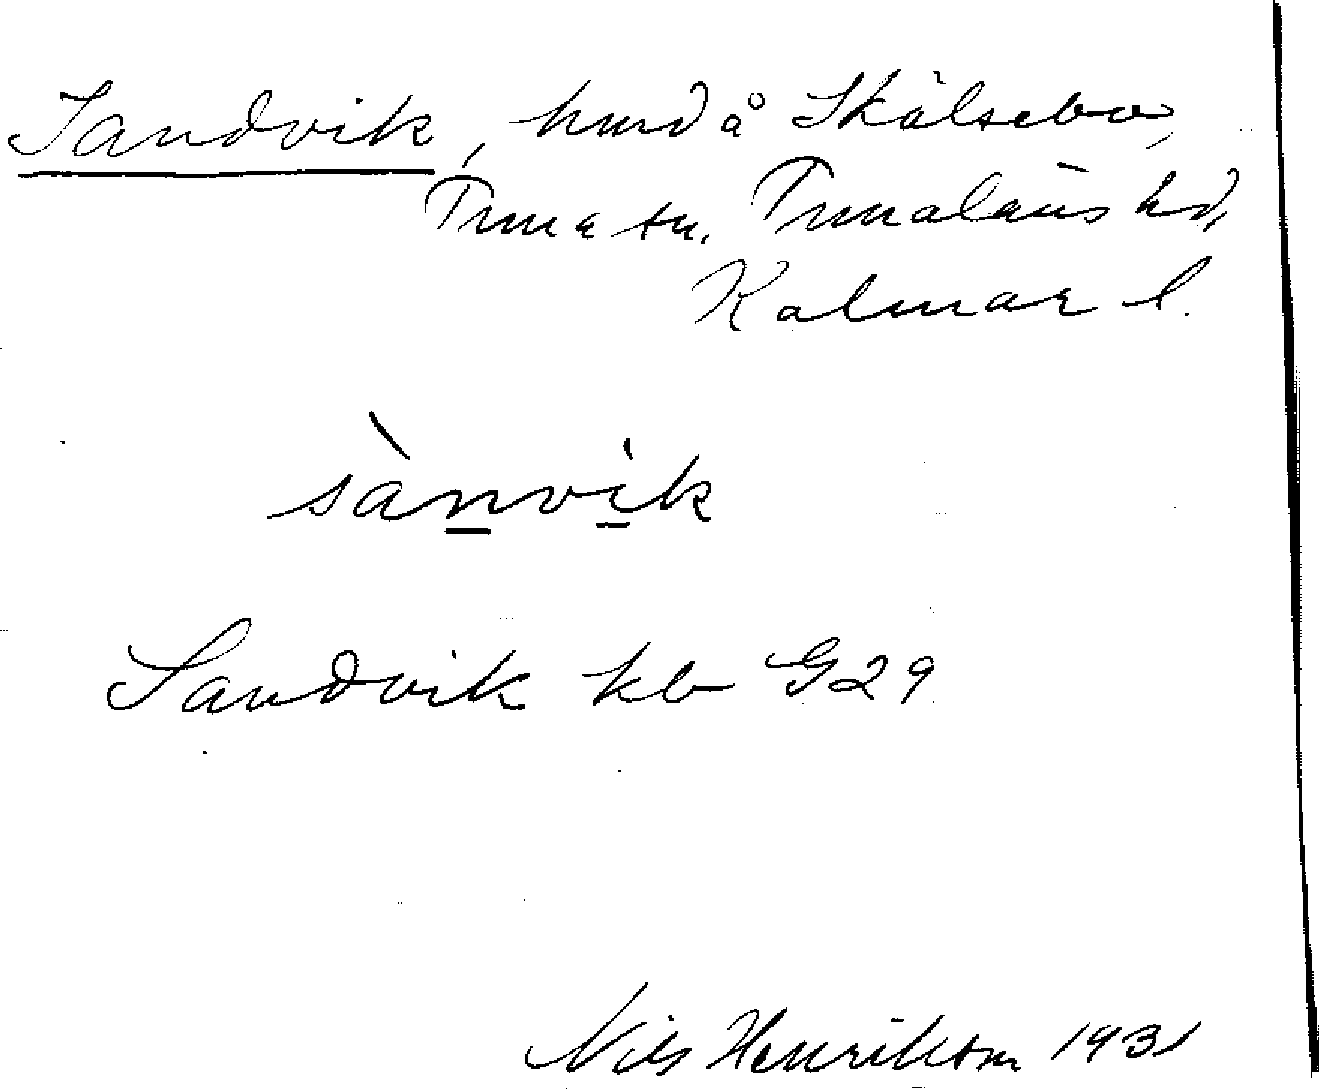 Sandvik, hmd å Skälsebo,
Tuna sn. Tunaläns hd,
Kalmar l.
sànvik
Sandvik kb G29
Nils Henrikson 1931